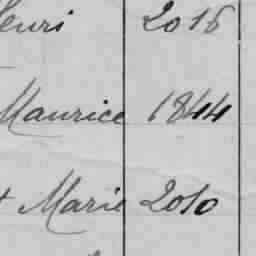 Henri 2016
Maurice 1844
t Marie 2010